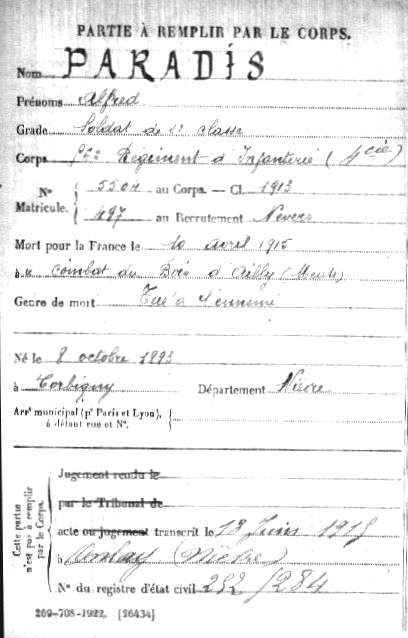 PARTIE À REMPLIR PAR LE CORPS.
Nom PARADIS
Prénoms Alfred
Grade Soldat de 2e classe
Corps Régiment d'Infanterie (4 cie)
N° 5504 au Corps. — Cl. 1913
Matricule. 497 au Recrutement Nevers
Mort pour la France le 10 avril 1915
à u combat du Bois d'Ailly (Meuse)
Genre de mort Tué à l'ennemi
Né le 8 octobre 1893
à Corbigny Département Nièvre
Arrt municipal (pr Paris et Lyon),
à défaut rue et N°.
Cette partie
n'est pas à remplir
par le Corps.
Jugement rendu le
par le Tribunal de
acte ou jugement transcrit le 13 Juin 1915
à (Nièvre)
N° du registre d'état civil 282/284
269-708-1922. [26434]